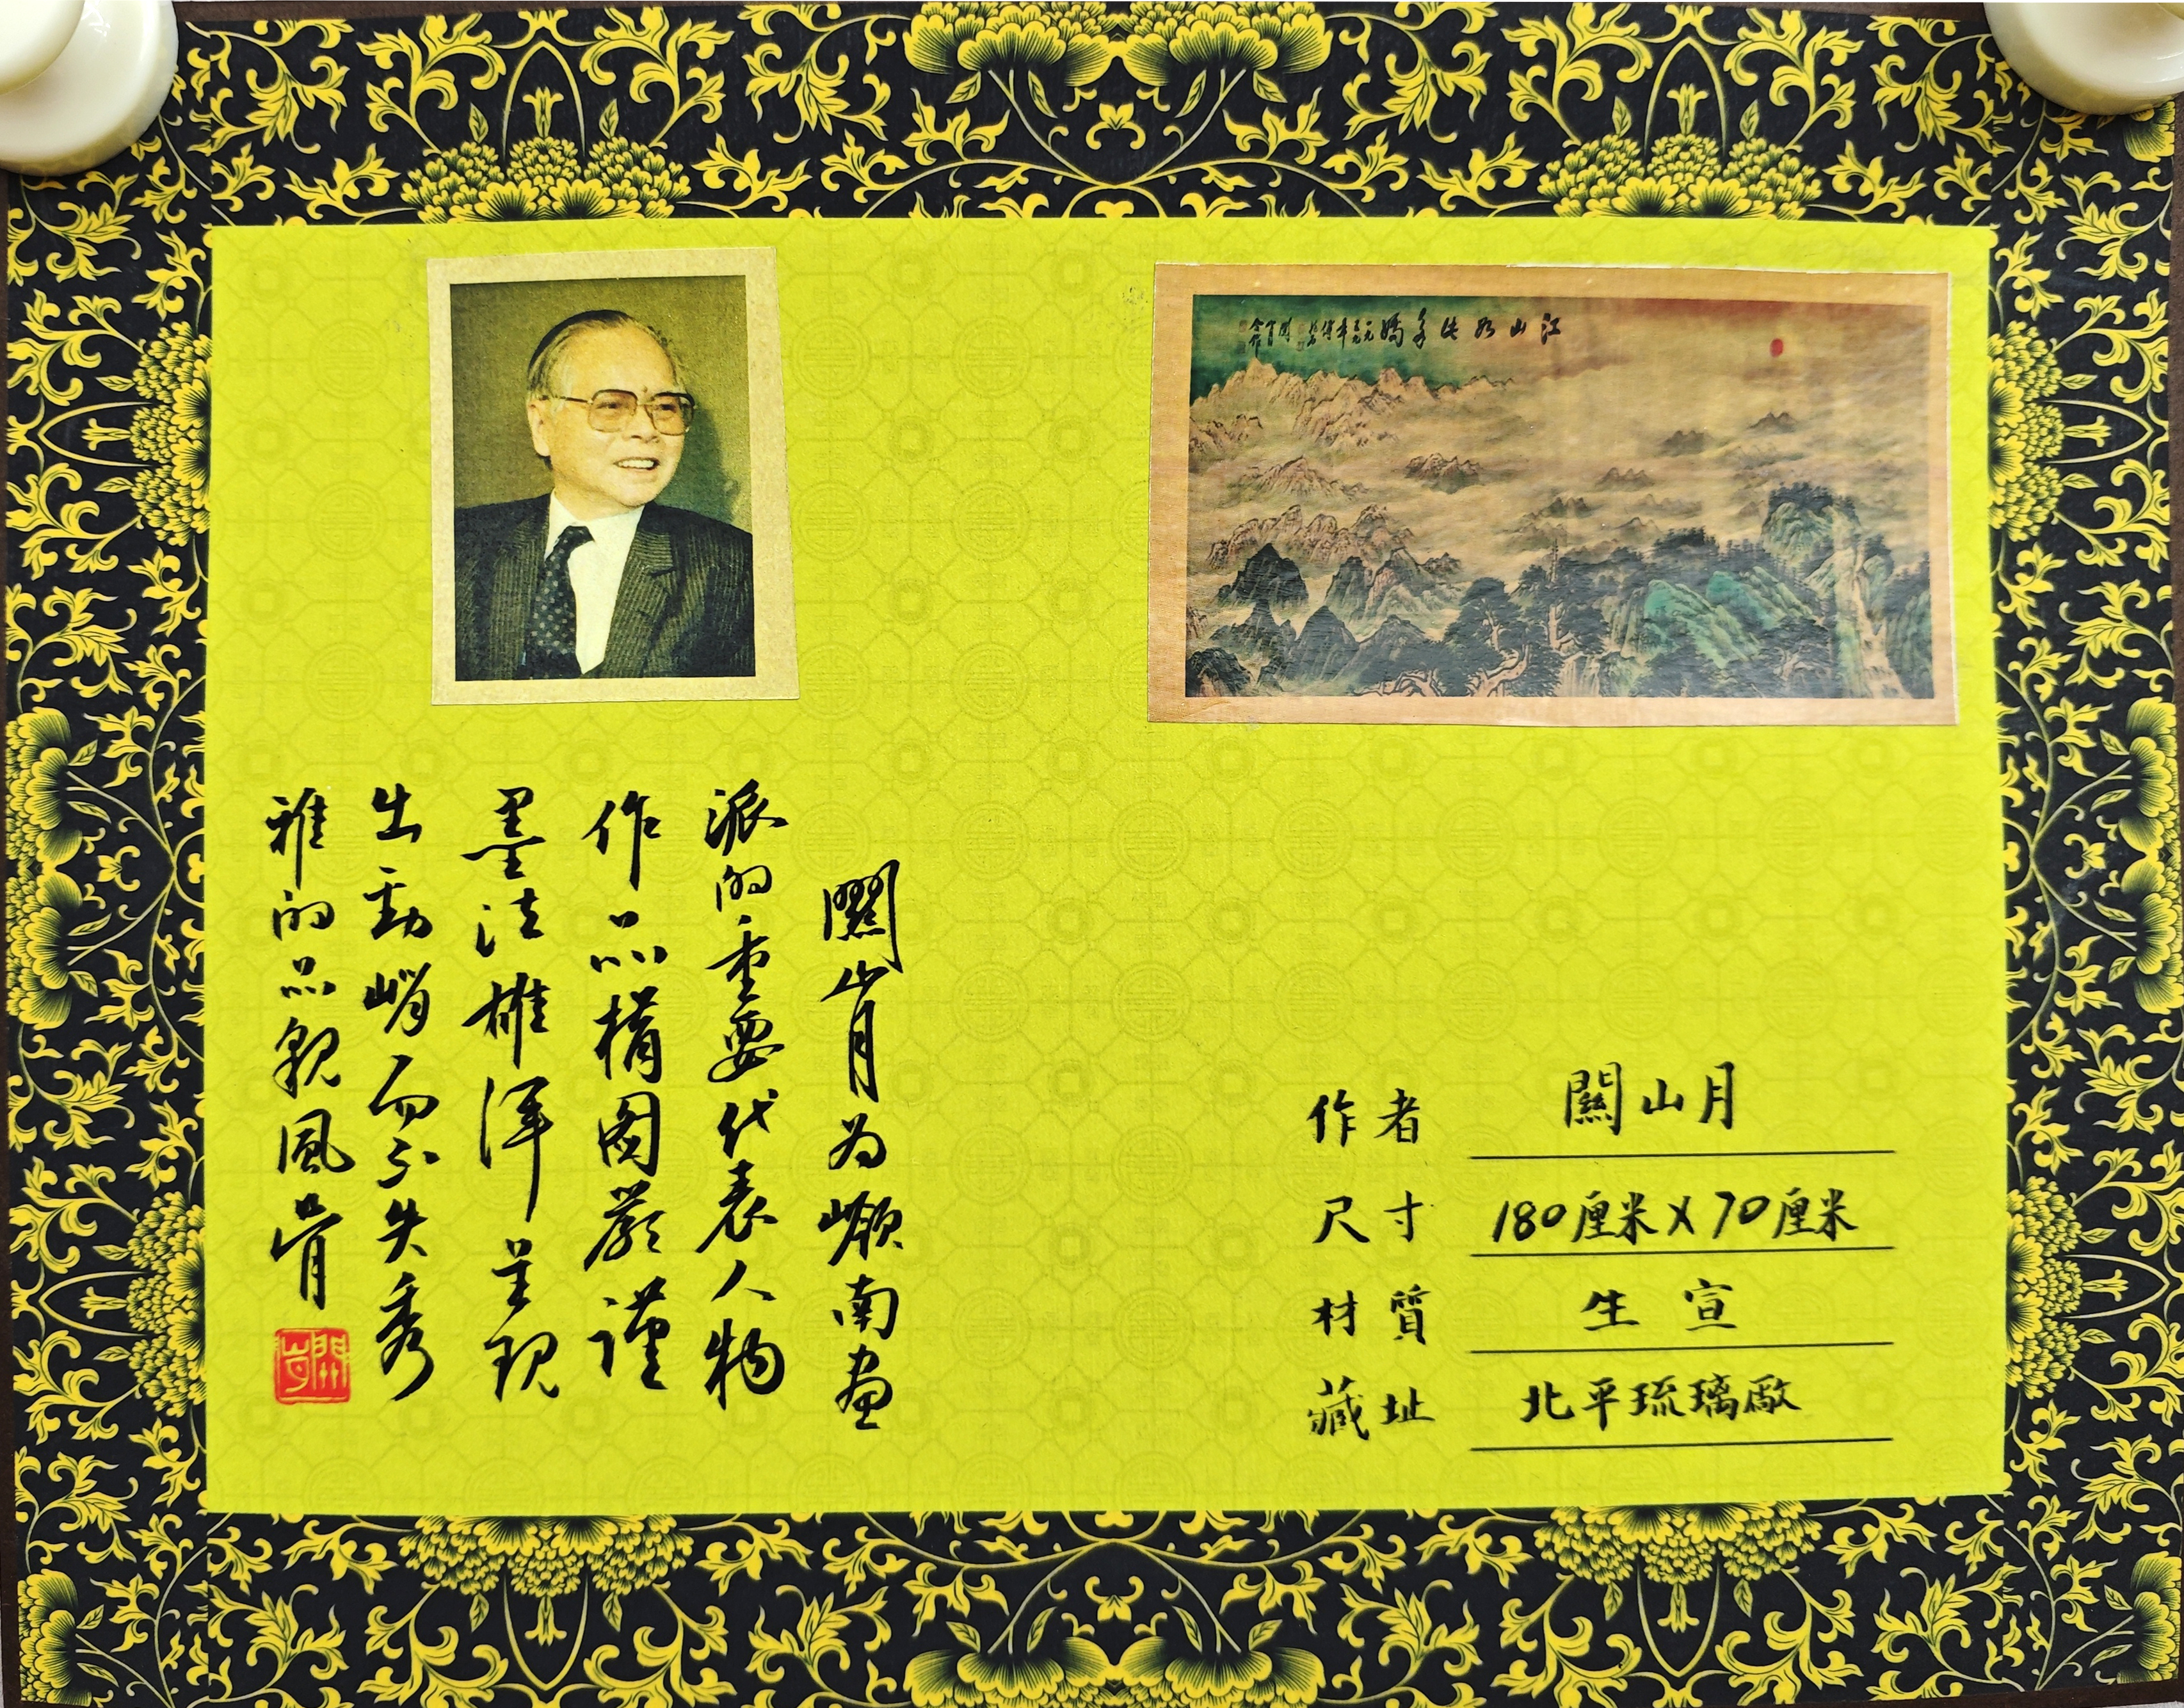 江山如此多嬌
關山月为嶺南畫
派的重要代表人物
作品構圖嚴謹
墨法雄渾呈現
出勁峭而不失秀
雅的品貌風骨
作者 關山月
尺寸 180厘米X70厘米
材質 生宣
藏址 北平琉璃廠